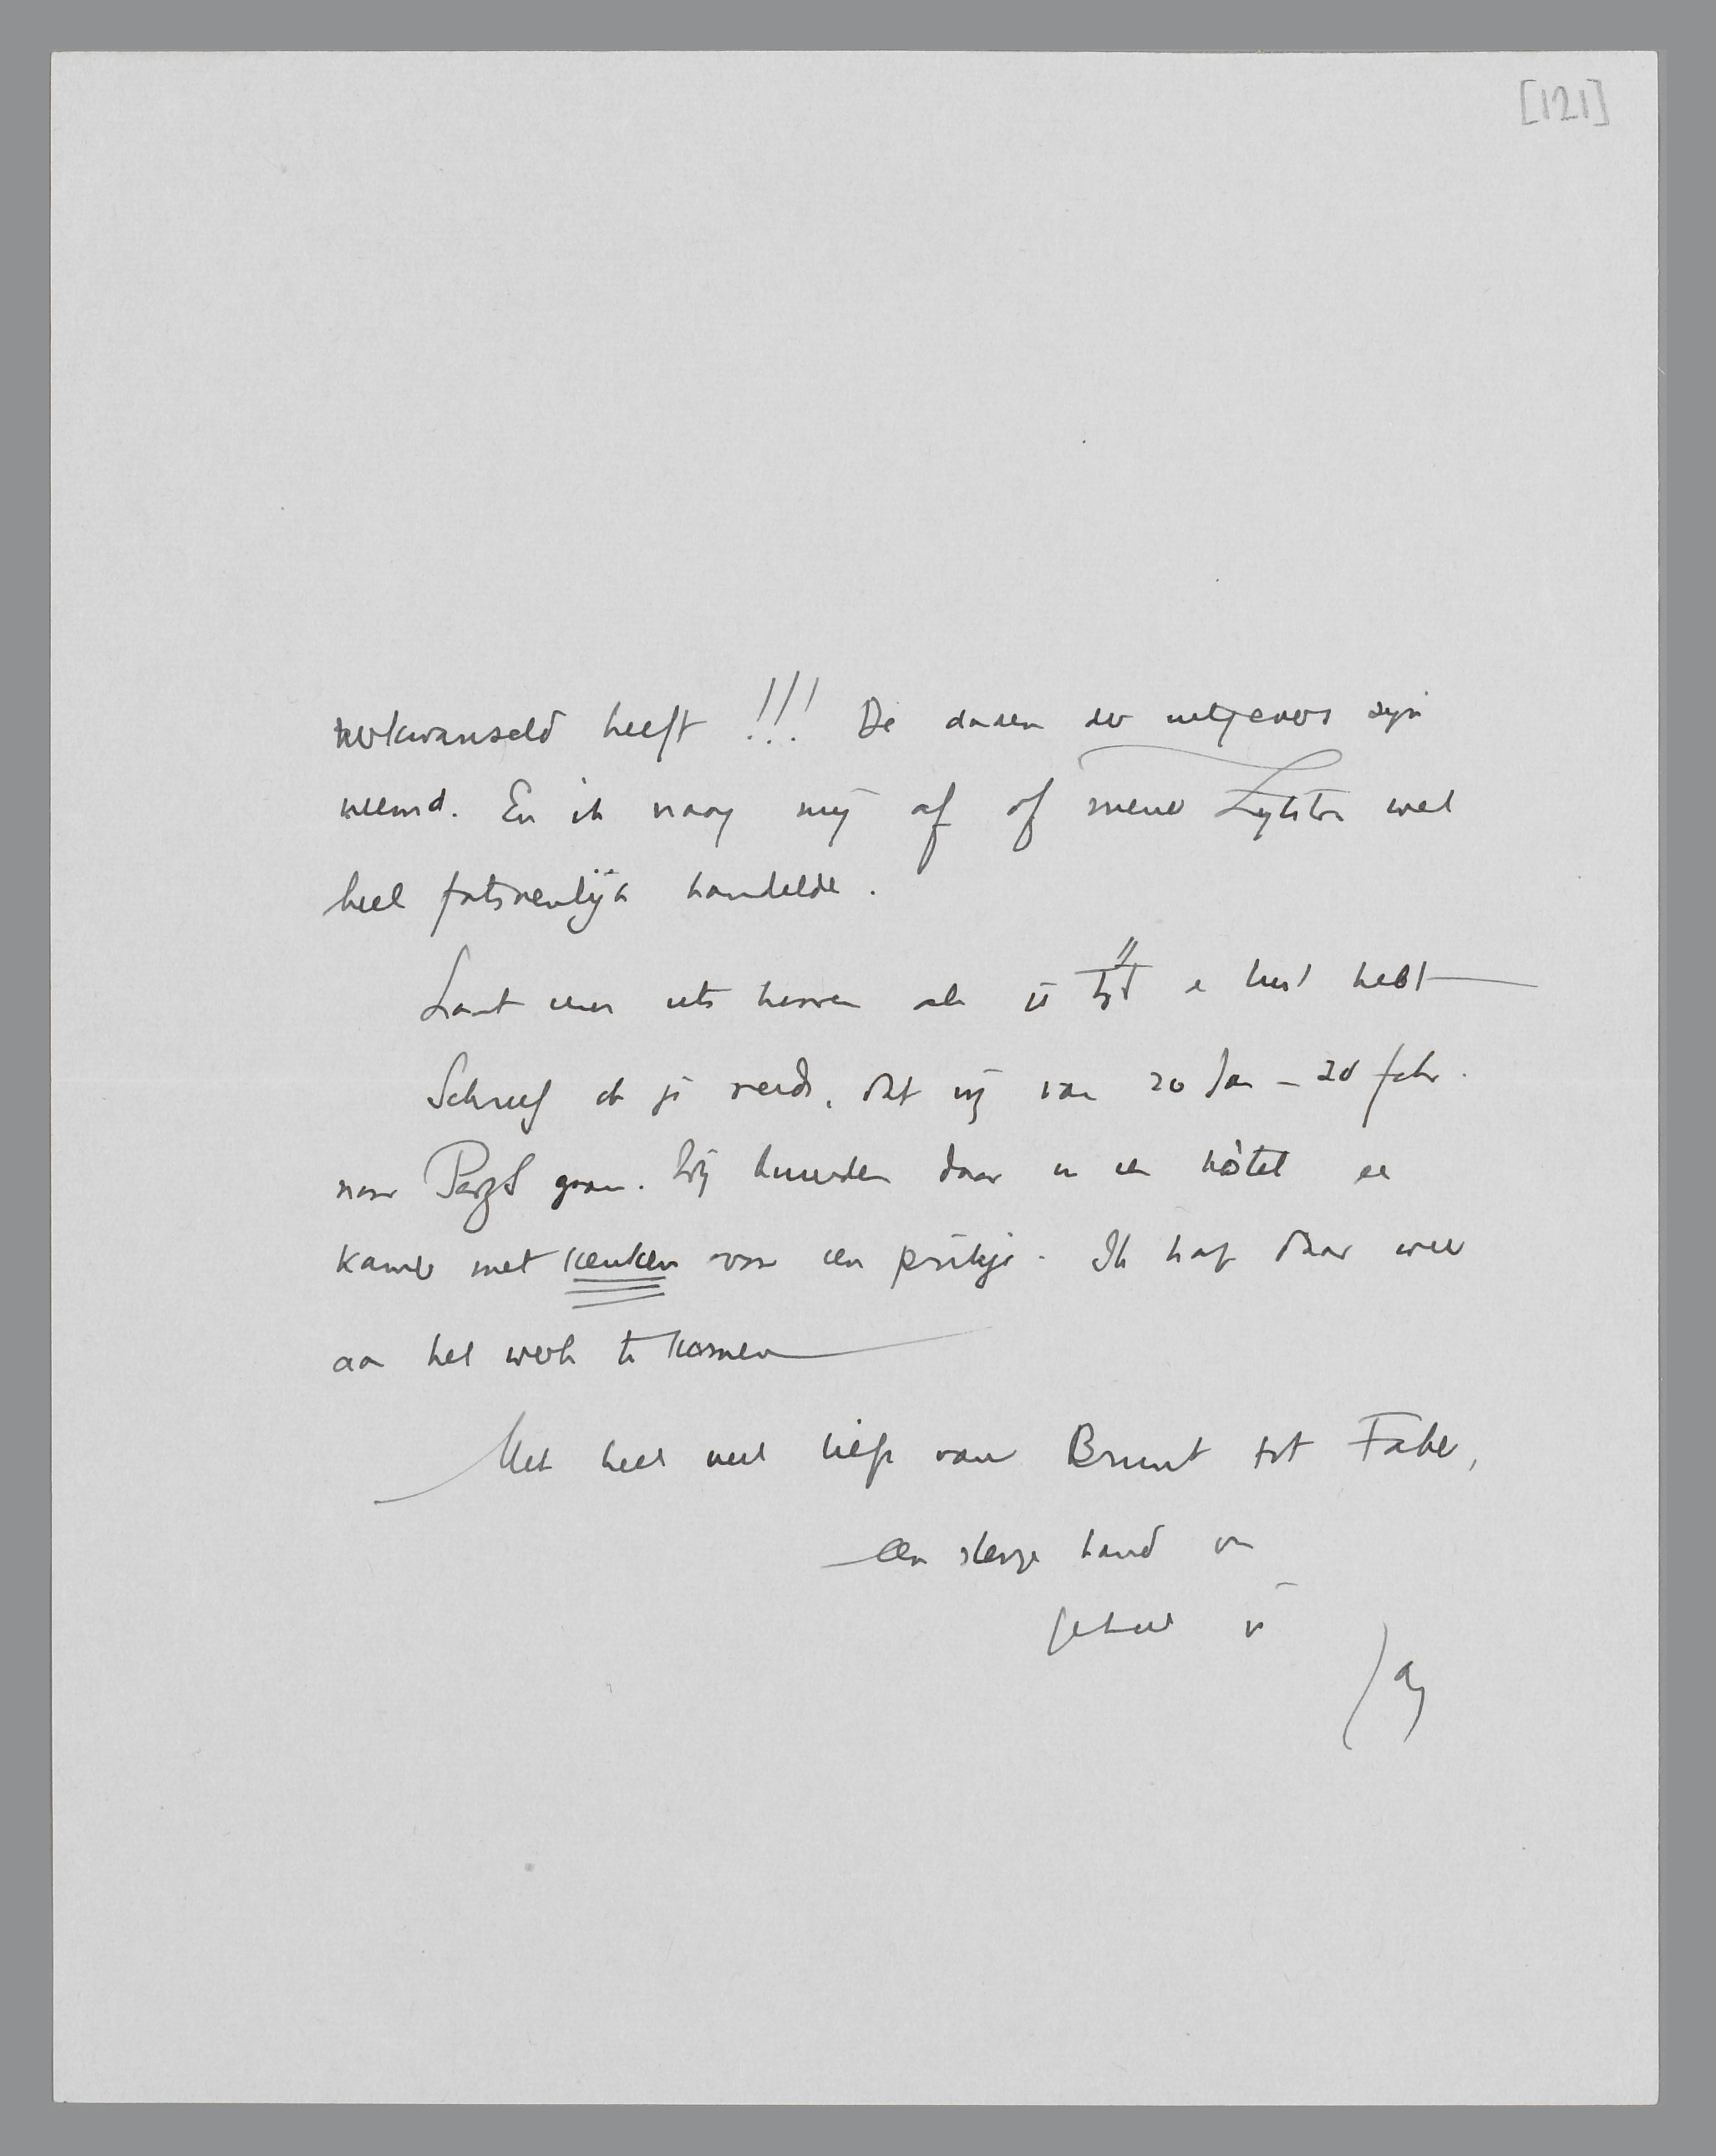 [121]
verkwanseld heeft !!! De daden der uitgevers zijn
vreemd. En ik vraag mij af of mijnheer Lijsten wel
heel fatsoenlijk handelde.
Laat eens iets hooren als je tijd en lust hebt —
Schreef ik je reeds, dat wij van 20 Jan – 20 febr.
naar Parijs gaan. Wij huurden daar in een hôtel een
kamer met keuken voor een prikje. Ik hoop daar weer
aan het werk te komen —
Met heel veel liefs van Bruut tot Faber,
een stevige hand van
je
Jany